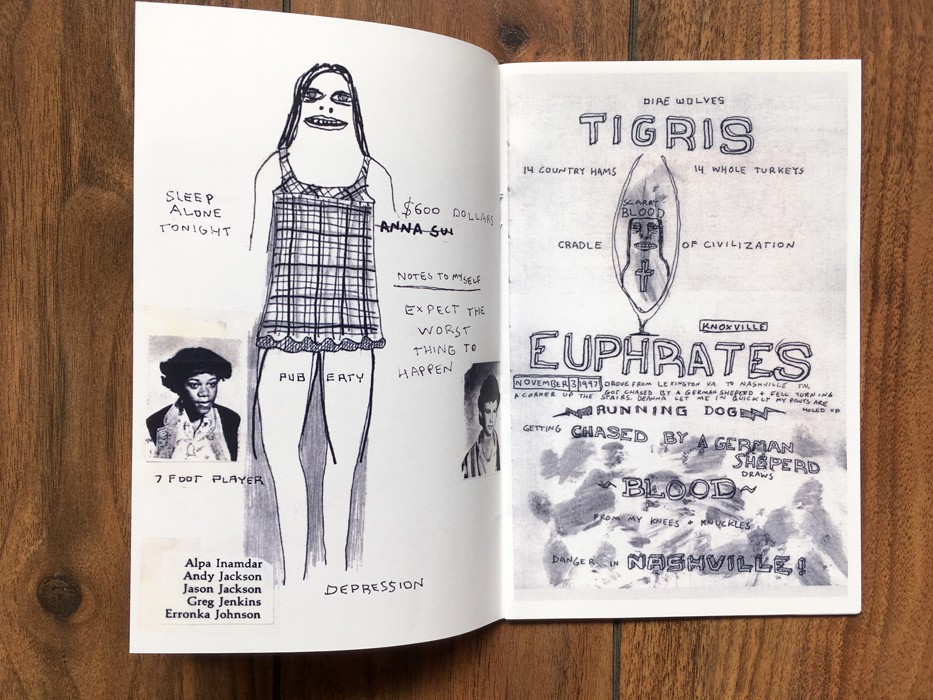 SLEEP
ALONE
TONIGHT
$600 DOLLARS
ANNA SUI
NOTES TO MYSELF
EXPECT THE
WORST
THING TO
HAPPEN
PUBERTY
7 FOOT PLAYER
DEPRESSION
Alpa Inamdar
Andy Jackson
Jason Jackson
Greg Jenkins
Erronka Johnson
DIRE WOLVES
TIGRIS
14 COUNTRY HAMS 14 WHOLE TURKEYS
SCARRY
BLOOD
CRADLE OF CIVILIZATION
KNOXVILLE
EUPHRATES
NOVEMBER 3 1997 DROVE FROM LEXINGTON VA TO NASHVILLE TN.
GOT CHASED BY A GERMAN SHEPERD + FELL TURNING
A CORNER UP THE STAIRS. DEANNA LET ME IN QUICKLY MY PANTS ARE
HOLED UP
RUNNING DOG
GETTING CHASED BY A GERMAN
SHEPERD
DRAWS
~BLOOD~
FROM MY KNEES + KNUCKLES
DANGER IN NASHVILLE!